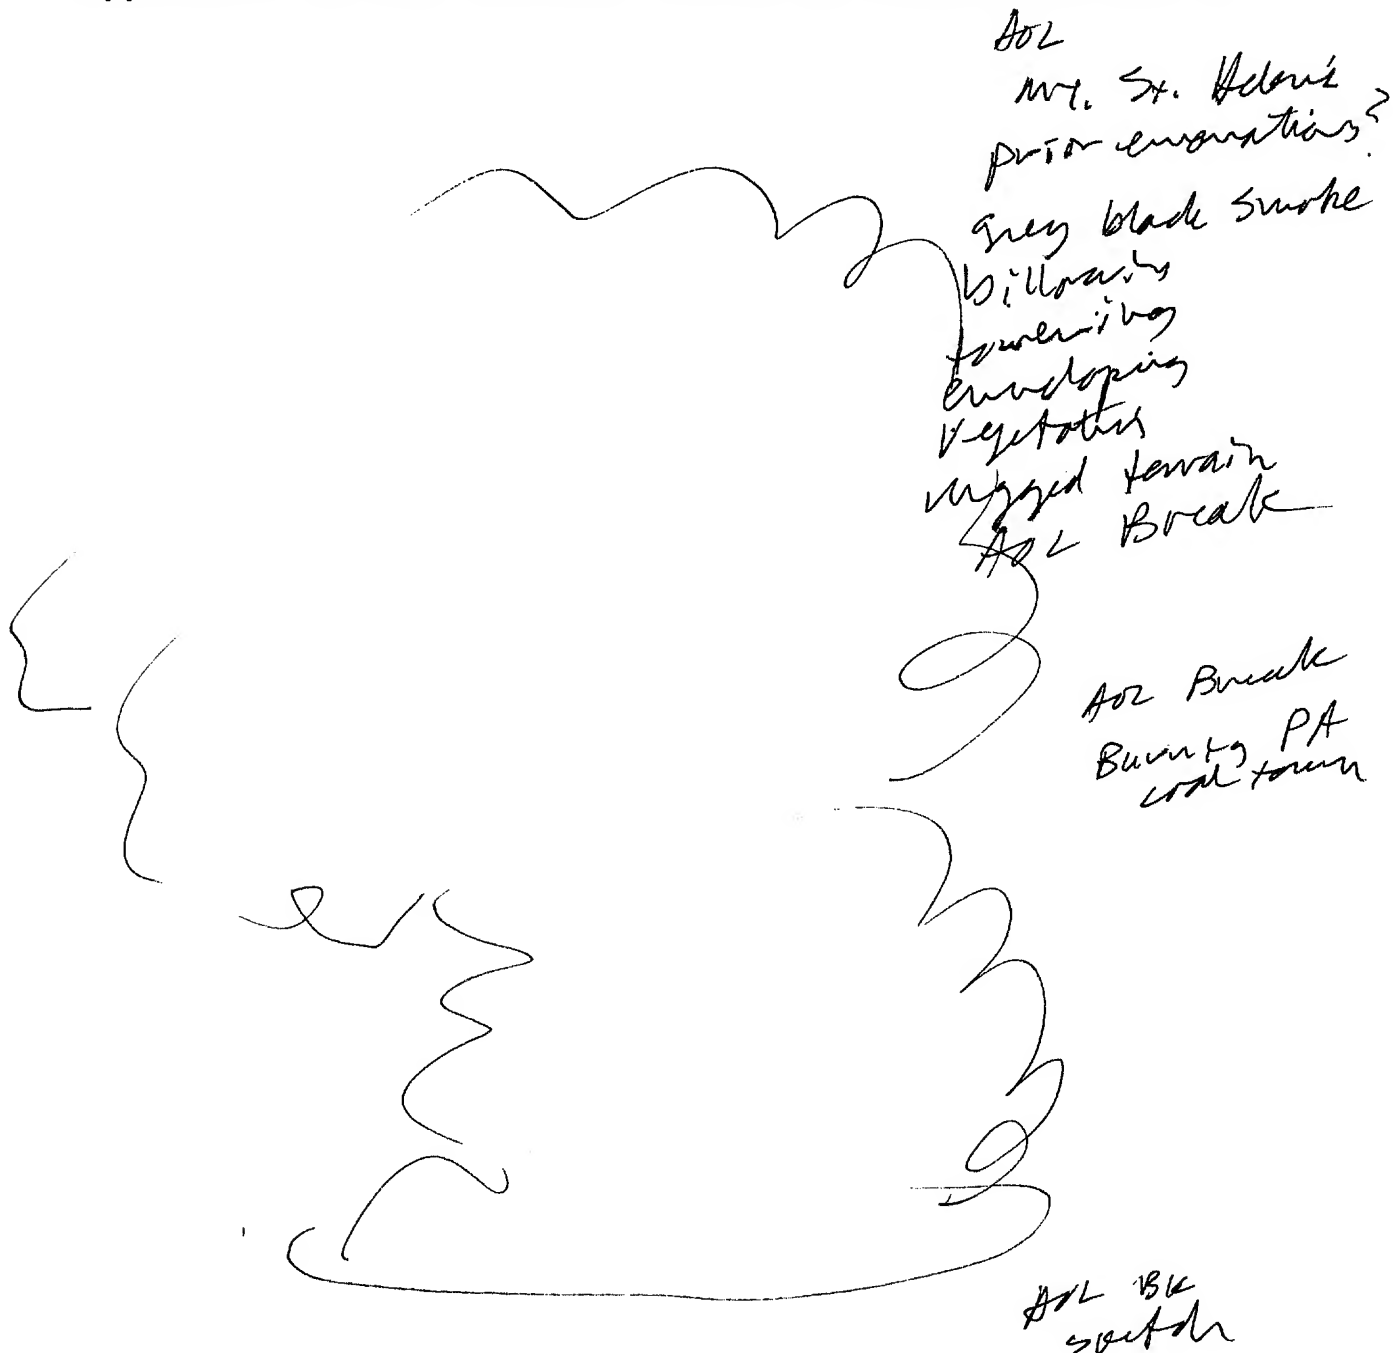 AOL
Mt. St. Helens
prior emanations?
grey black smoke
billowing
towering
enveloping
vegetation
rugged terrain
AOL Break
AOL Break
Burning PA
coal town
AOL BK
sketch